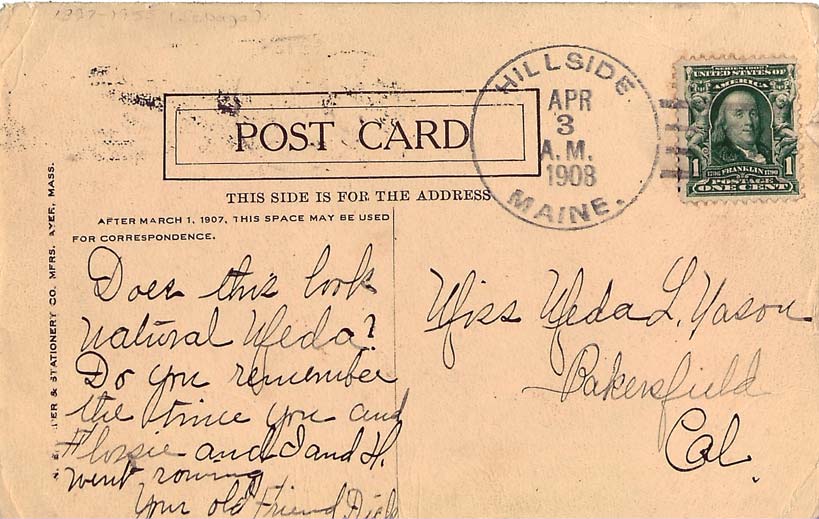 HILLSIDE
APR
3
A.M.
1908
MAINE.
SERIES 1902
UNITED STATES OF
AMERICA
1 1
1706 FRANKLIN 1790
POSTAGE
ONE CENT
POST CARD
THIS SIDE IS FOR THE ADDRESS
AFTER MARCH 1, 1907, THIS SPACE MAY BE USED
FOR CORRESPONDENCE.
& STATIONERY CO. MFRS. AYER, MASS.
Does this look
natural Meda?
Do you remember
the time you and
Flossie and I and H.
went rowing
Your old Friend
Miss Meda L.
Bakersfield
Cal.